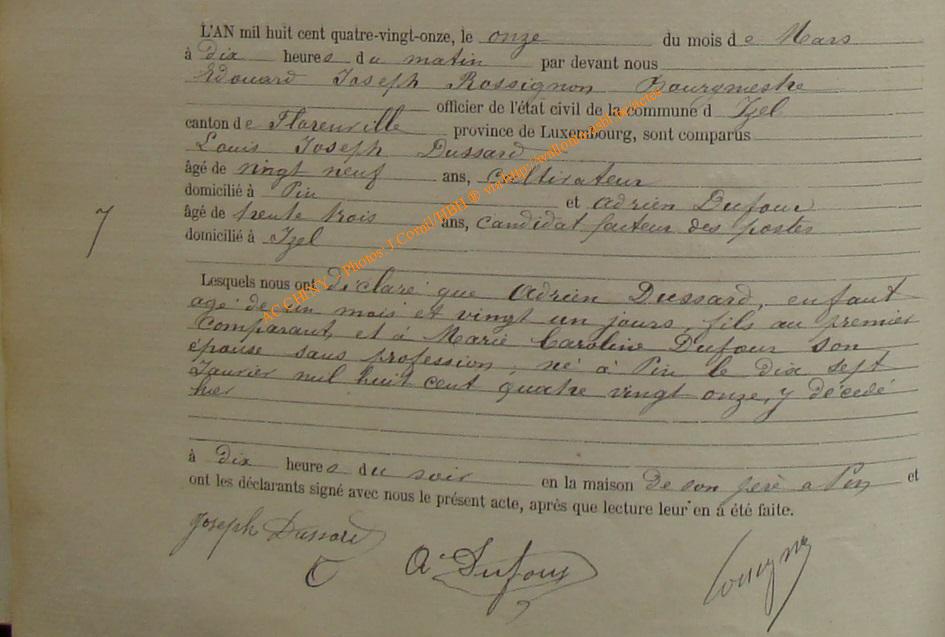 L'AN mil huit cent quatre-vingt-onze, le onze du mois de Mars
à dix heures du matin par devant nous
Edouard Joseph Rossignon Bourgmestre
officier de l'état civil de la commune d Izel
canton de Florenville province de Luxembourg, sont comparus
Louis Joseph Dussard
âgé de vingt neuf ans, cultivateur
domicilié à Pin et Adrien Dufour
7 âgé de trente trois ans, candidat facteur des postes
domicilié à Izel
Lesquels nous ont déclaré que Adrien Dussard, enfant
agé de un mois et vingt un jours, fils au premier
comparant, et à Marie Caroline Dufour son
épouse sans profession, né à Pin le dix sept
Janvier mil huit cent quatre vingt onze, y décedé
hier
à dix heures du soir en la maison de son père a Pin et
ont les déclarants signé avec nous le présent acte, après que lecture leur en á été faite.
Joseph Dussard
A Dufour
AC CHINY - Photos: J.Cornil/HBH ® via http://wallonica